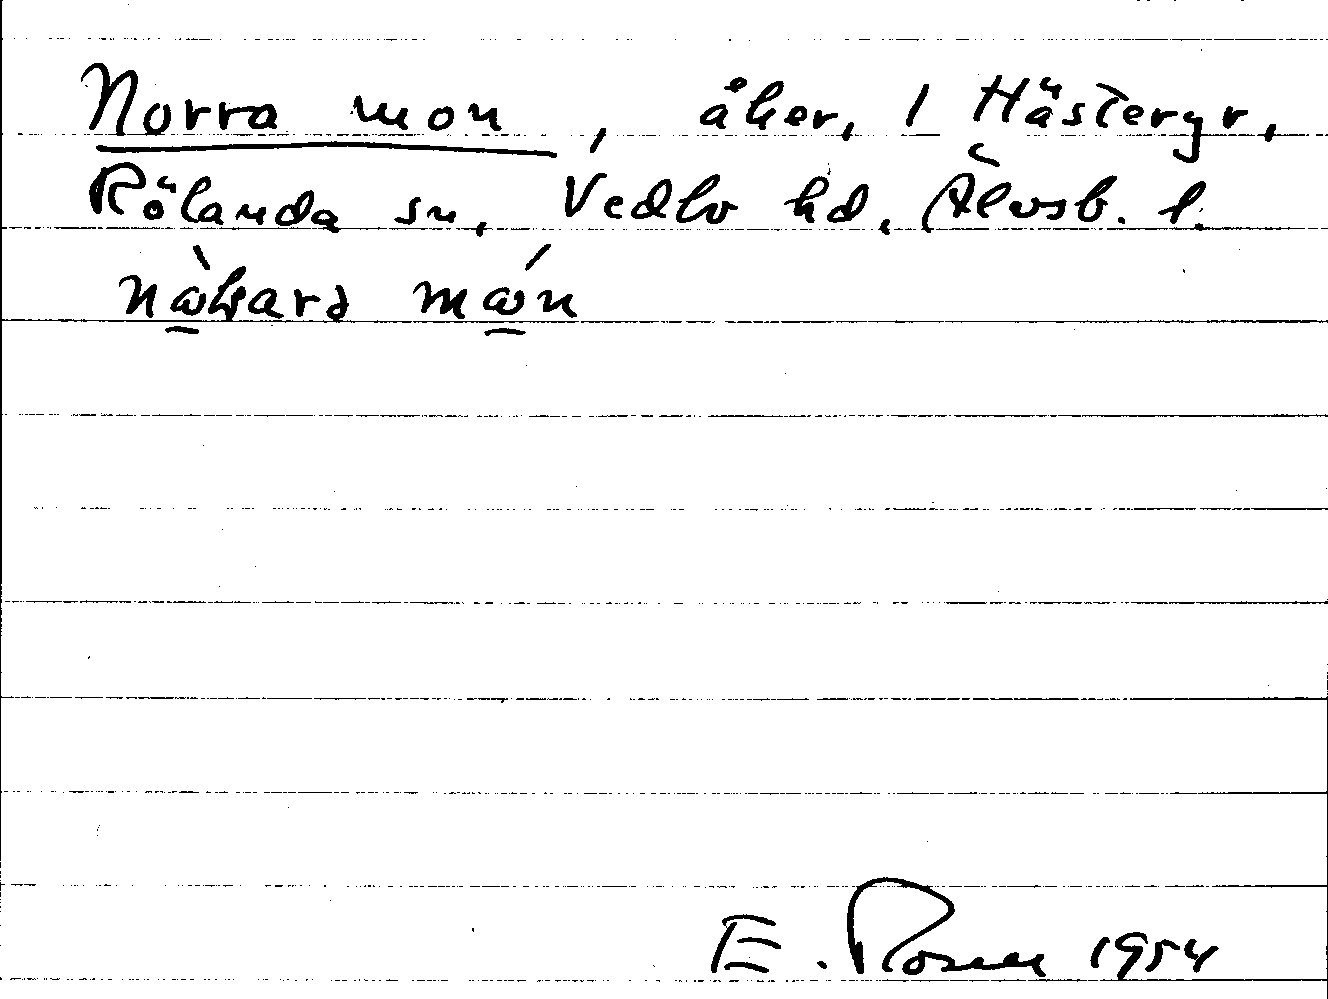 Norra mon, åker, 1 Hästeryr,
Rölanda sn, Vedbo hd, Älvsb. l.
mån
E. Rosell 1954